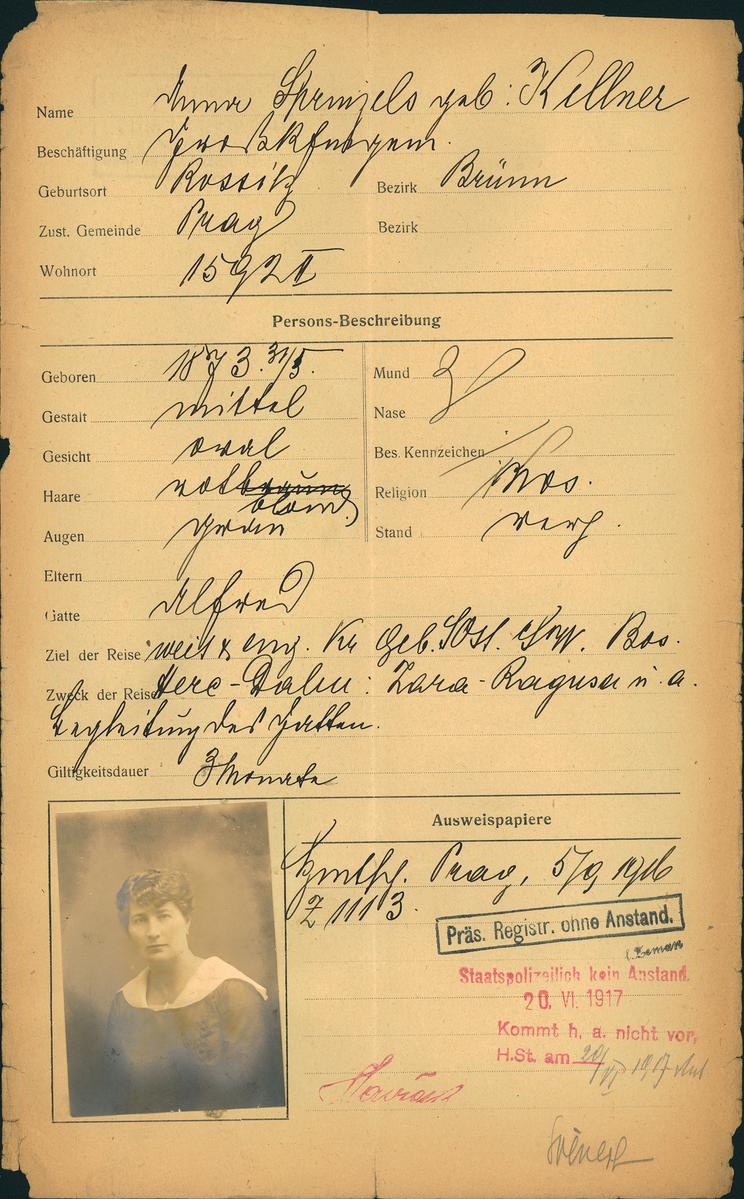 Name Anna Sprinzels geb: Kellner
Beschäftigung Großkfmgem.
Geburtsort Rossitz Bezirk Brünn
Zust. Gemeinde Prag Bezirk
Wohnort 1592 II
Persons-Beschreibung
Geboren 1873. 31/5. Mund
Gestalt mittel Nase
Gesicht oval Bes. Kennzeichen
Haare rotbraun blond Religion Mos.
Augen grau Stand verh.
Eltern
Gatte Alfred
Ziel der Reise weit & eng. Kr Geb. SOst. Bos.
Zweck der Reise Herc-Dalm: Zara-Ragusa u. a.
Begleitung des Gatten.
Giltigkeitsdauer 3 Monate
Ausweispapiere
Prag, 5/9 1916
Z 11113.
Präs. Registr. ohne Anstand.
Staatspolizeilich kein Anstand.
20. VI. 1917
Kommt h. a. nicht vor,
H.St. am 20/VI 1917